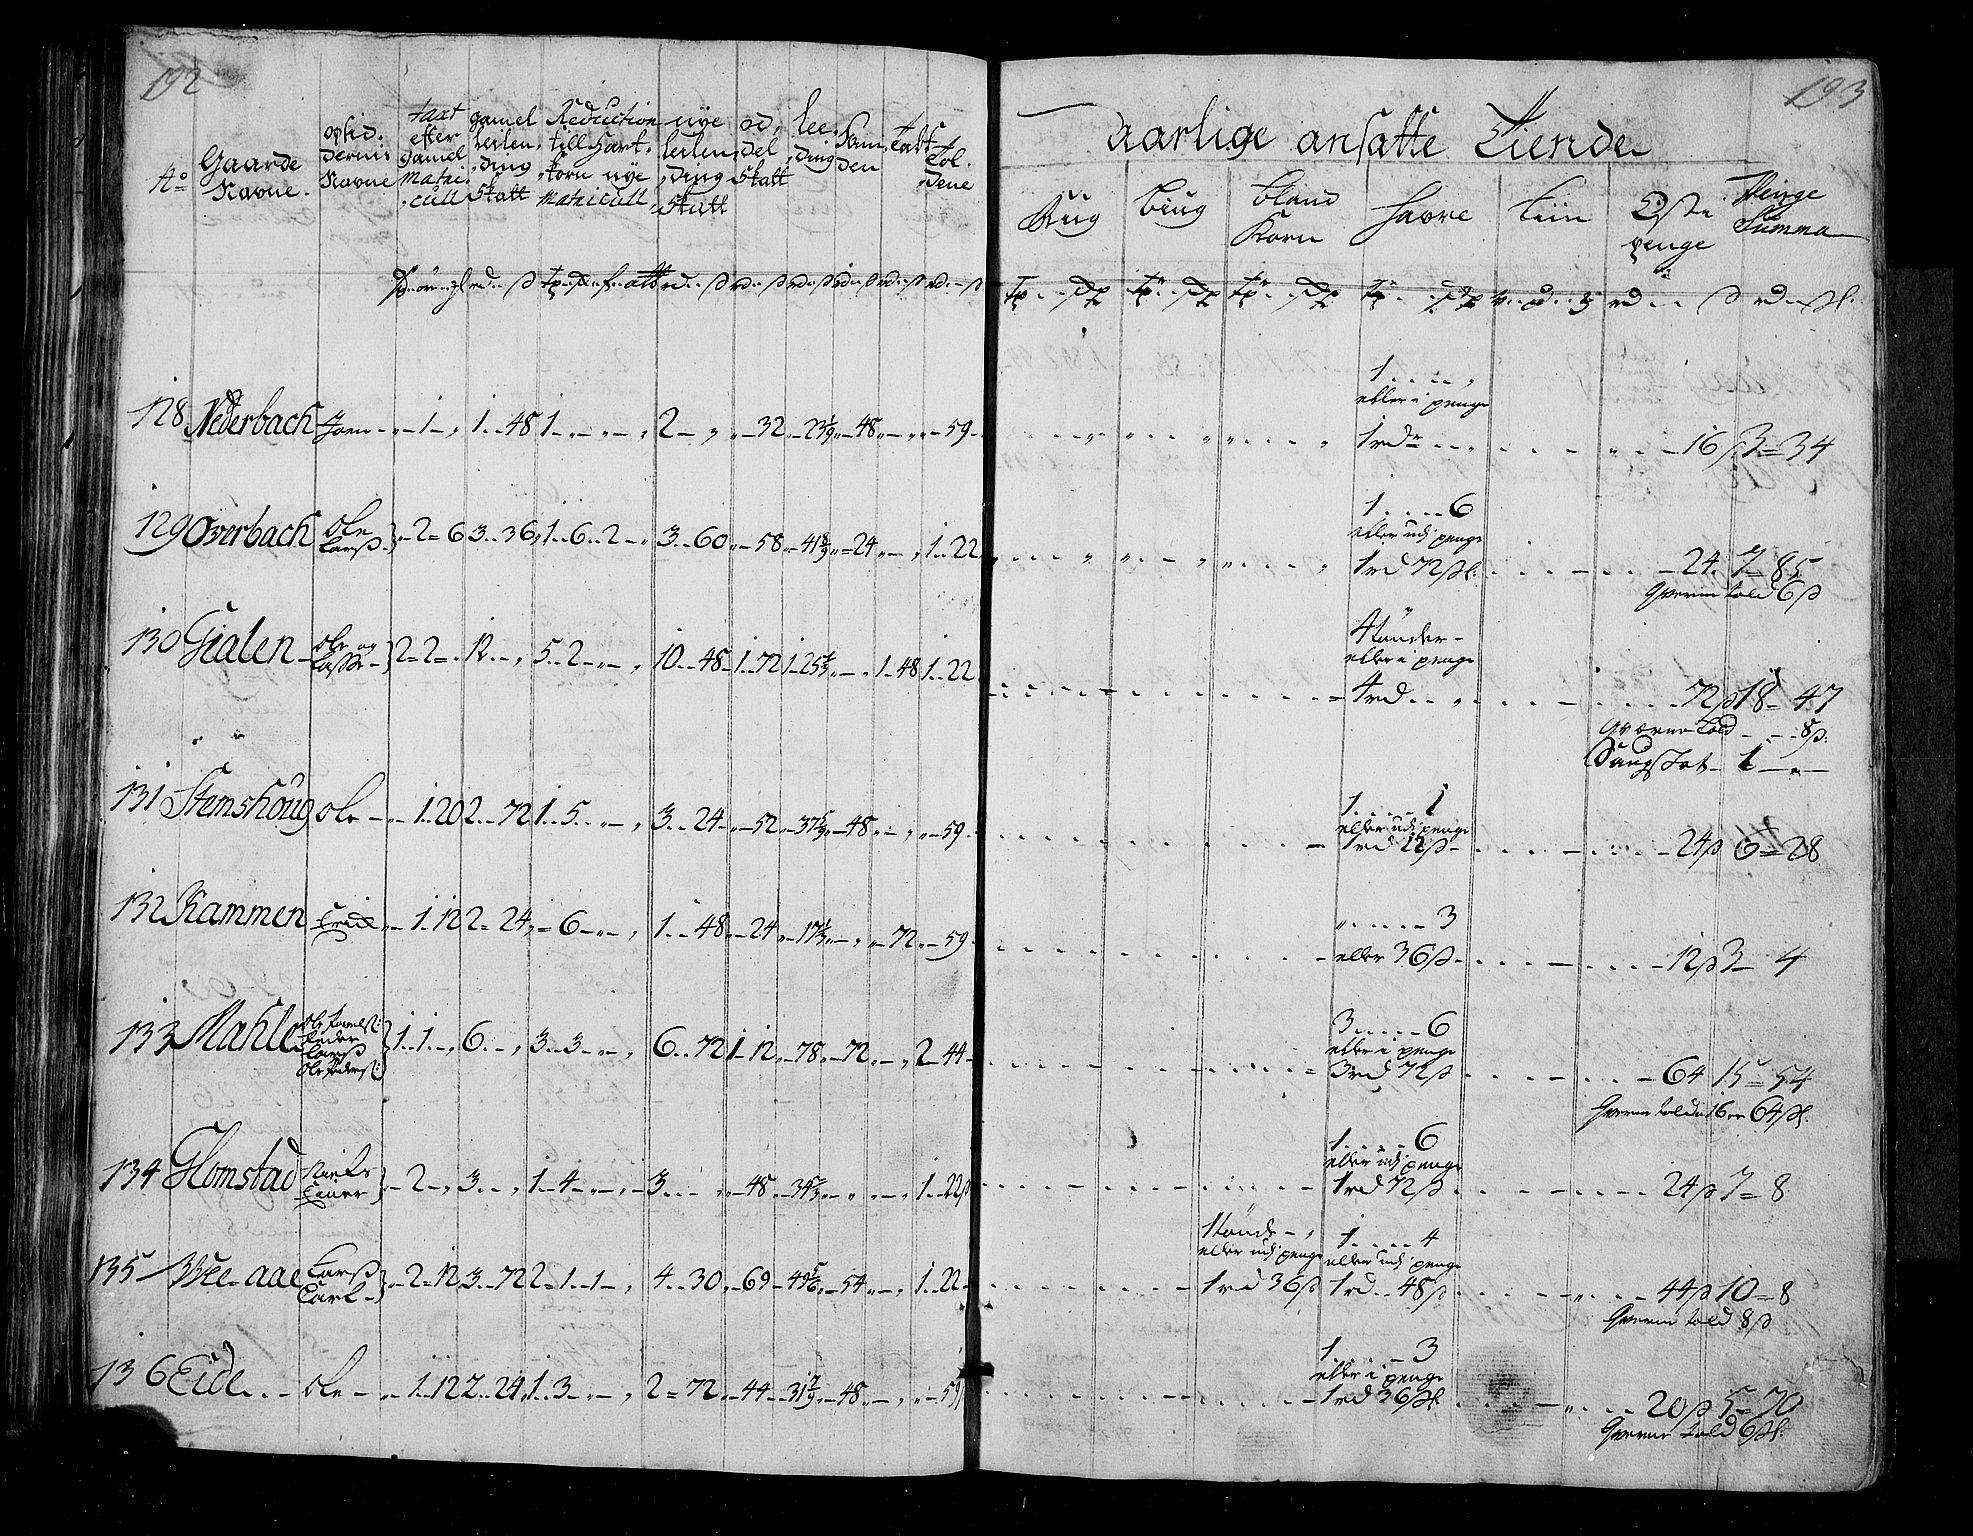 192
No Gaarde Navne
opsid: dernis Navne
taxt efter gamel Matri: cull
gamel leilen: ding skatt
Reduction till hart: korn nye Matricull
nye leilen: ding skatt
od: del skatt
lee: ding
Tol: dene
128 Nederbach Joen - „ - 1 - „ 1 .. 48 1 .. „ - „ - „ 2 - „ „ - 32 „ - 23 1/9 „ - 48 „ - „ „ - 59
129 Overbach Ole Larß } „ - 2 = 6 3 .. 36 „ 1 .. 6 .. 2 - „ 3 .. 60 „ - 58 „ - 41 8/9 „ = 24 „ - „ 1 .. 22
130 Gialen Ole og Lasse } 2 = 2 = „ 12 - „ 5 .. 2 - „ - „ 10 .. 48 - 1 .. 72 1 .. 25 „ - „ 1 - 48 1 .. 22
131 Stemshoug Ole - „ - 1 .. 20 2 .. 72 1 .. 5 .. „ - „ 3 .. 24 - „ - 52 „ - 37 „ - 48 „ - „ „ - 59
132 Kammen „ - 1 .. 12 2 = 24 „ = 6 - „ - „ 1 .. 48 „ - 24 „ - 17 „ - „ „ - 72 „ - 59
133 Mahle Peder Larß Ole Pederß: } 1 .. 1 - „ 6 .. - „ 3 .. 3 - „ - „ 6 .. 72 1 - 12 „ - 78 „ - 72 „ - „ 2 - 44
134 Glomstad Niels Einer } „ - 2 - „ 3 .. - „ 1 - 4 - „ - „ 3 .. „ „ - 48 „ - 34 „ - „ „ - „ 1 .. 22 ß
135 Wee-aae Larß Lars } „ - 2 - 12 3 - 72 2 - 1 - 1 - „ 4 .. 30 „ - 69 - 49 „ - 54 „ - „ 1 .. 22
136 Eide .. - Ole - „ - 1 .. 12 2 .. 24 „ 1 .. 3 .. „ - „ 2 = 72 „ - 44 - 31 „ - 48 „ - „ „ - 59
193
Aarlige ansatte Tiende
Rug
Biug
Bland Korn
Havre
Liin
Oste penge
Penge Summa
1 .... „
eller i penge
1 rdr .. „ - 16 ß 3 = 34
1 .... 6
eller udj penge
1 rd 72 ßl: - 24 - 7 - 85
Qverne told 6 ß
4 tønder -
eller i penge
4 rd .. „ 72 ß 18 - 47
Qværne told - - - 8 ß:
Saugskat - 1 - „ -
1 .... 1
eller udj penge
1 rd 12 ß - 24 ß 6 = 28
„ ..... 3
eller 36 ß - 12 ß 3 - 4
3 .... 6
eller i penge
3 rd 72 ß - 64 15 = 54
Qverne told 64 ßl.
1 .... 6
eller udj penge
1 rd 72 ß - 24 ß 7 = 8
1 tønde - „ 1 .... 4
eller udj penge eller udj penge
1 rd 36 ß 1 rd .. 48 ß - 44 ß 10 = 8
Qverne told 8 ß
1 .... 3
eller i penge
1 rd 36 ßl - 20 ß 5 - 70
Qverne told 6 ßl.